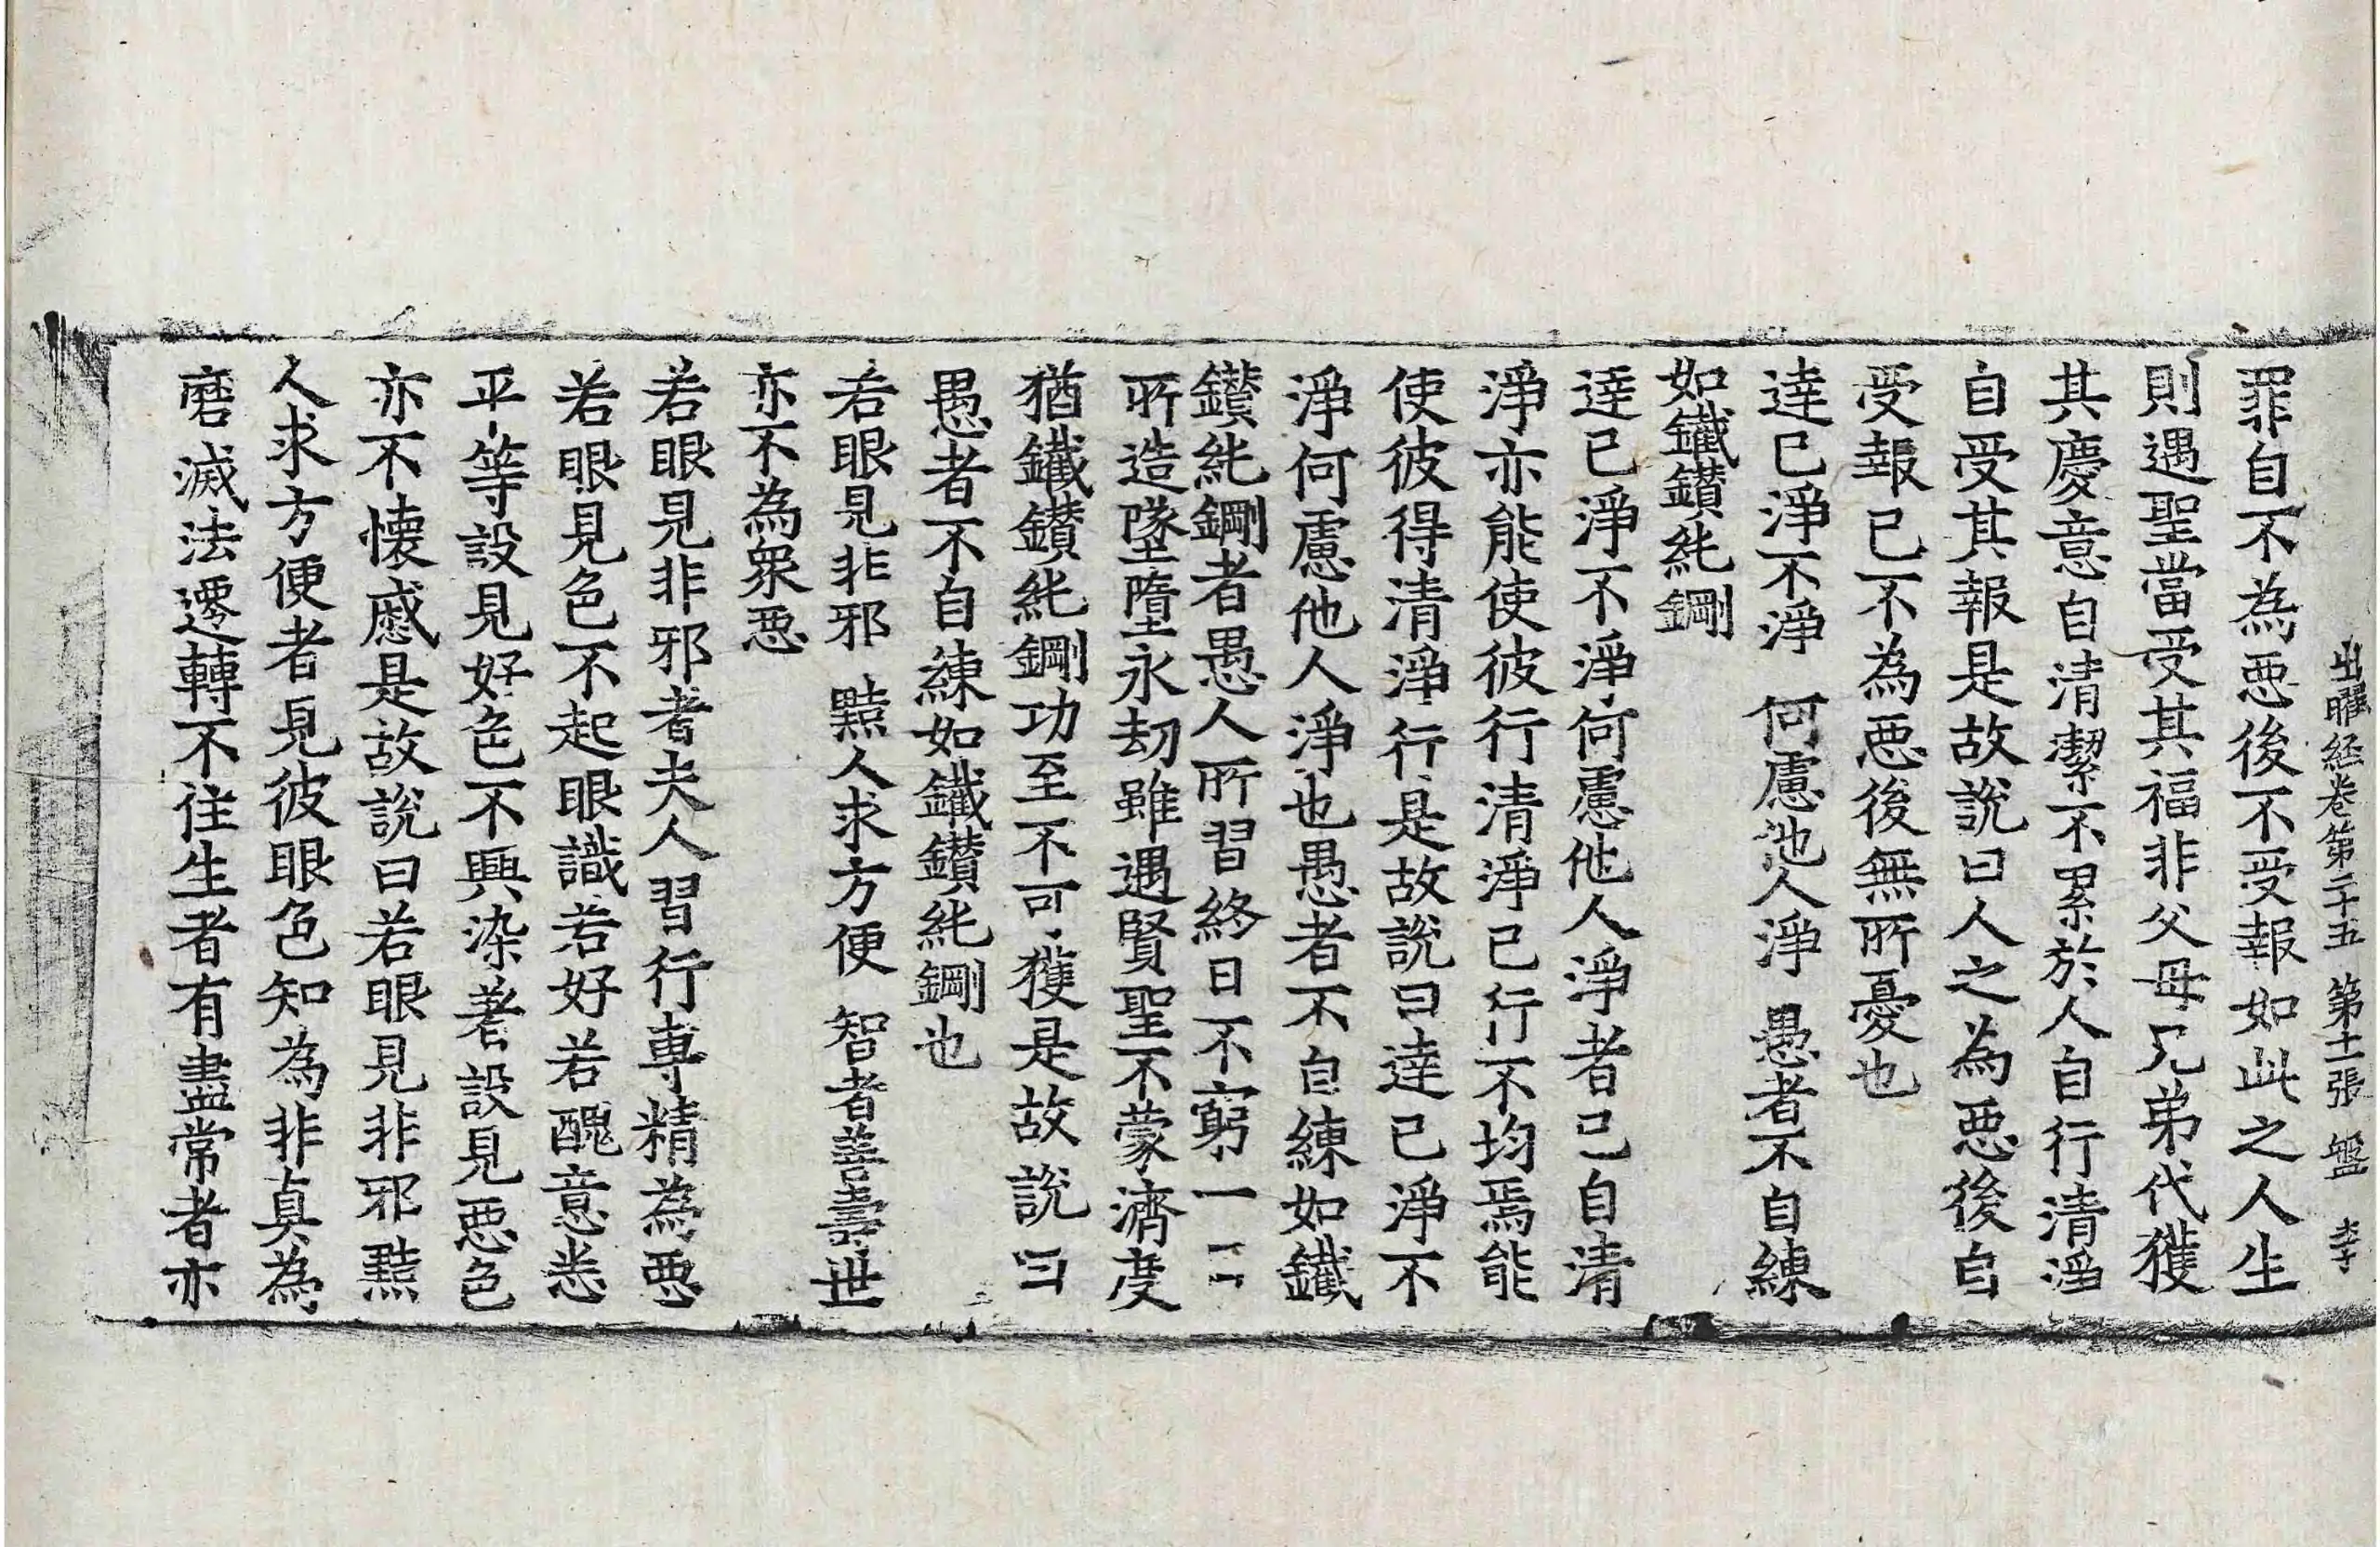 出曜経卷第二十五 第十一張 盤 李
罪自不為惡後不受報如此之人生
則遇聖當受其福非父母兄弟代獲
其慶意自清潔不累於人自行清淨
自受其報是故說曰人之為惡後自
受報已不為惡後無所憂也
達已淨不淨 何慮他人淨 愚者不自練
如鐵鑽純鋼
達已淨不淨何慮他人淨者已自清
淨亦能使彼行清淨已行不均焉能
使彼得清淨行是故說曰達已淨不
淨何慮他人淨也愚者不自練如鐵
鑽純鋼者愚人所習終日不窮一一
所造墜墮永劫雖遇賢聖不蒙濟度
猶鐵鑽純鋼功至不可獲是故說曰
愚者不自練如鐵鑽純鋼也
若眼見非邪 黠人求方便 智者善壽世
亦不為衆惡
若眼見非邪者夫人習行專精為要
若眼見色不起眼識若好若醜意悉
平等設見好色不興染著設見惡色
亦不懷慼是故說曰若眼見非邪黠
人求方便者見彼眼色知為非真為
磨滅法遷轉不住生者有盡常者亦